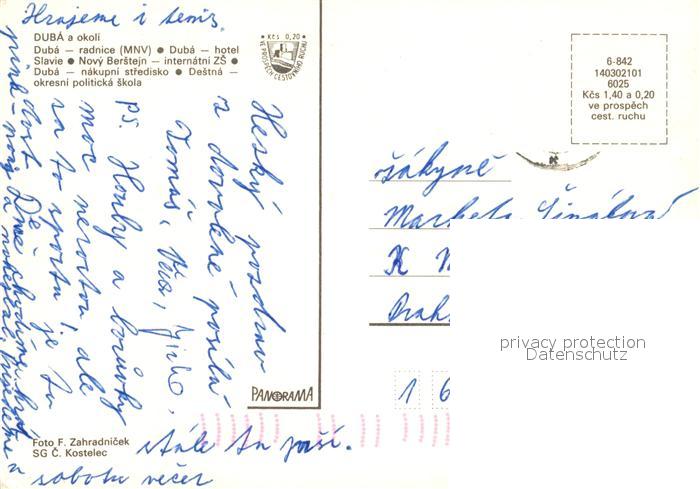 Hrajeme i tenis,
DUBÁ a okolí
Dubá — radnice (MNV) ● Dubá — hotel
Slavie ● Nový Berštejn — internátní ZŠ ●
Dubá — nákupní středisko ● Deštná —
okresní politická škola
● Kčs 0,20 ●
VE PROSPĚCH CESTOVNÍHO RUCHU
6-842
140302101
6025
Kčs 1,40 a 0,20
ve prospěch
cest. ruchu
Hezký pozdrav
z dovolené posílá
Tomáš, Věra, Jirka,
PS. Houby a borůvky
moc nerostou, ale
za to sportu je tu
dost
stále tu prší.
v sobotu večer
žákyně
Markéta
K
Praha
1 6
PANORAMA
Foto F. Zahradníček
SG Č. Kostelec
privacy protection
Datenschutz